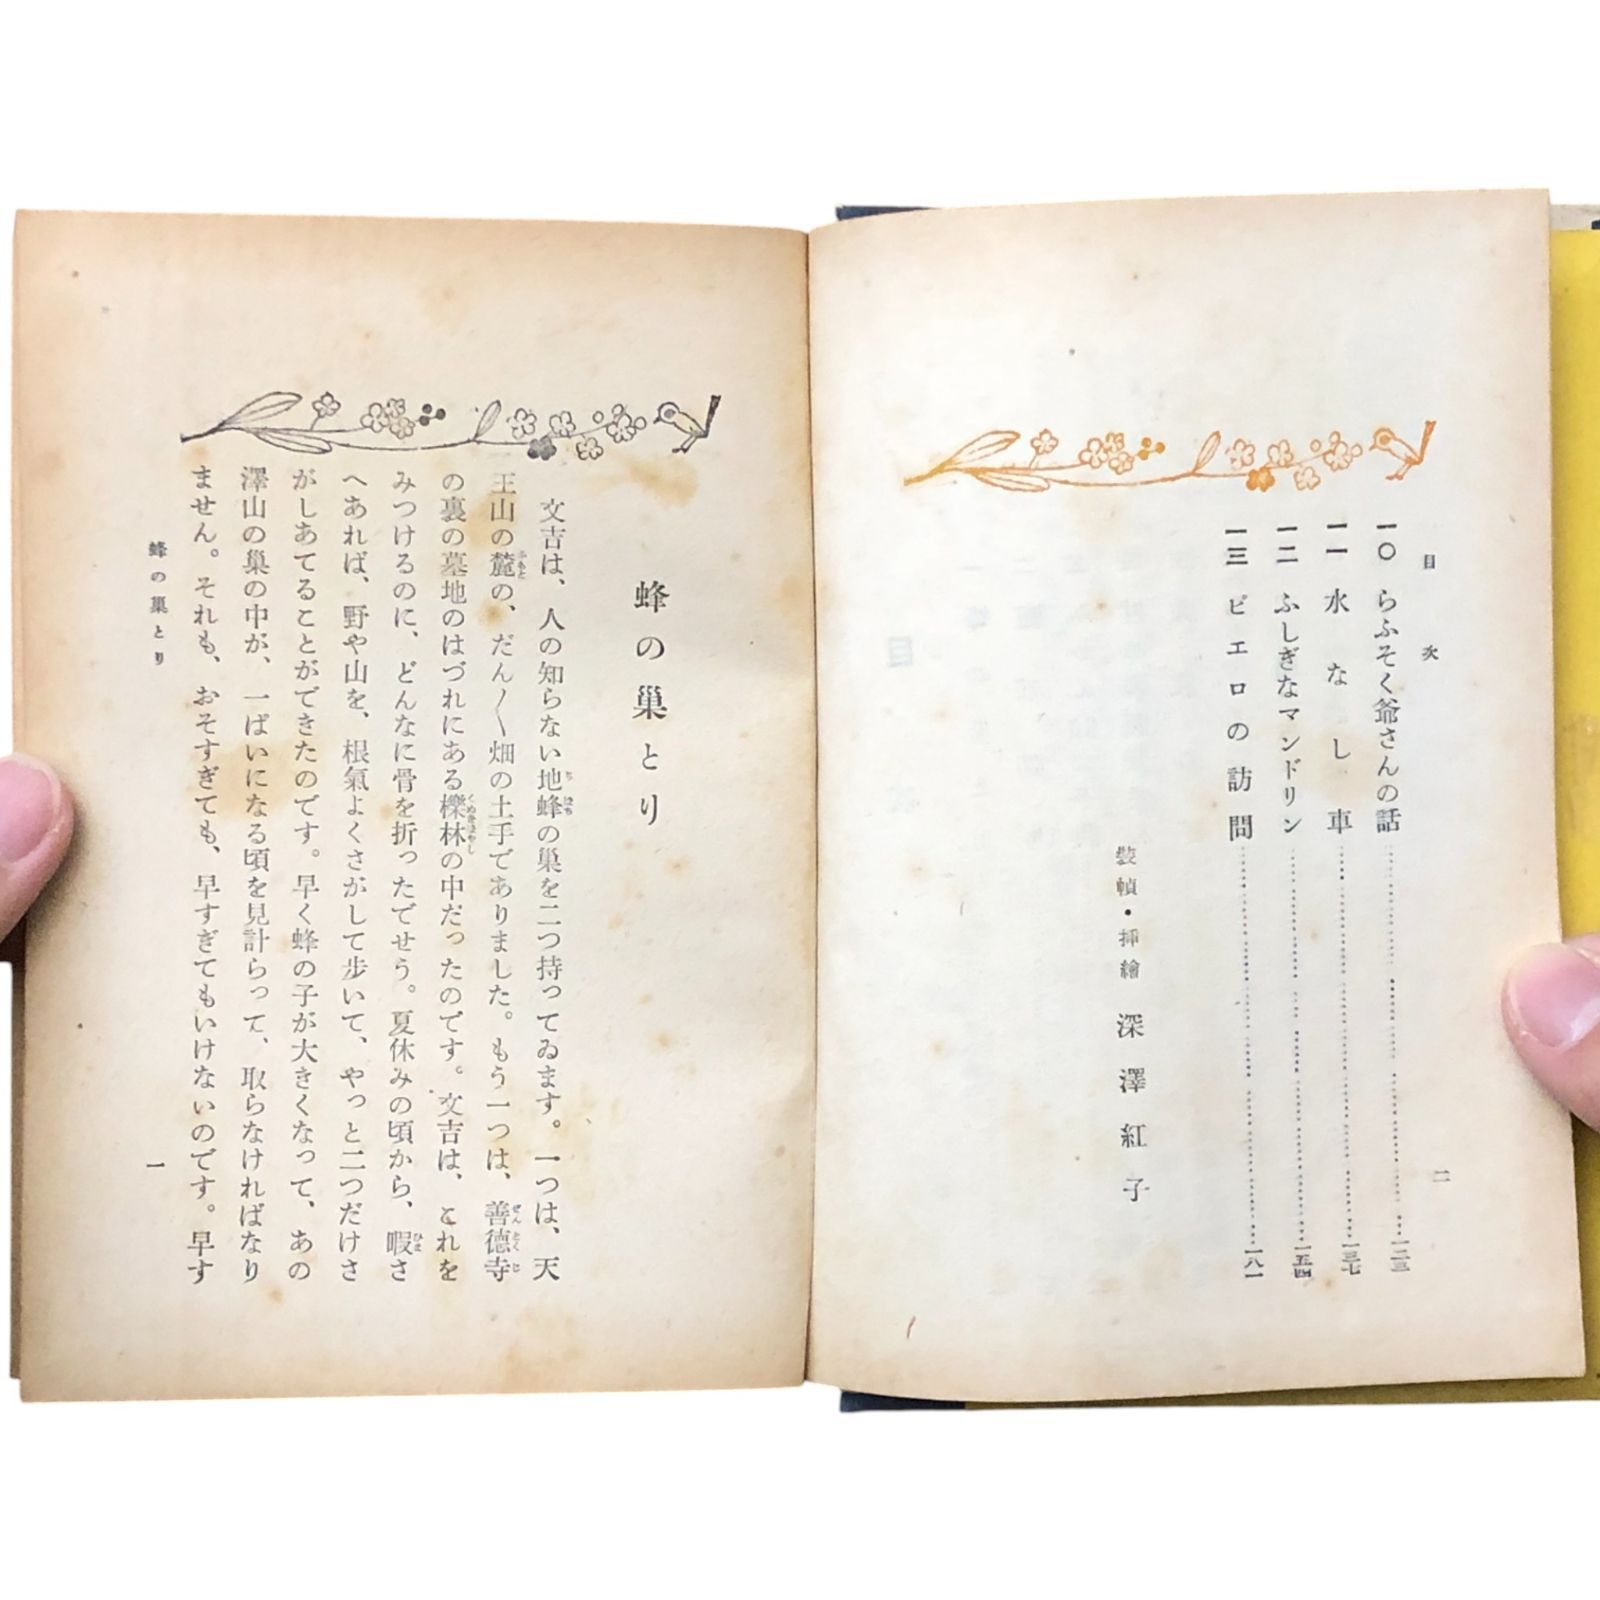 目次
二
一〇 らふそく爺さんの話……一二三
一一 水なし車……一三七
一二 ふしぎなマンドリン……一五四
一三 ピエロの訪問……一八一
裝幀・揷繪 深澤紅子
蜂の巢とり
文吉は、人の知らない地蜂の巢を二つ持ってゐます。一つは、天
王山の麓の、だん〱畑の土手でありました。もう一つは、善德寺
の裏の墓地のはづれにある櫟林の中だったのです。文吉は、これを
みつけるのに、どんなに骨を折ったでせう。夏休みの頃から、暇さ
へあれば、野や山を、根氣よくさがして步いて、やっと二つだけさ
がしあてることができたのです。早く蜂の子が大きくなって、あの
澤山の巢の中が、一ぱいになる頃を見計らって、取らなければなり
ません。それも、おそすぎても、早すぎてもいけないのです。早す
蜂の巢とり
一